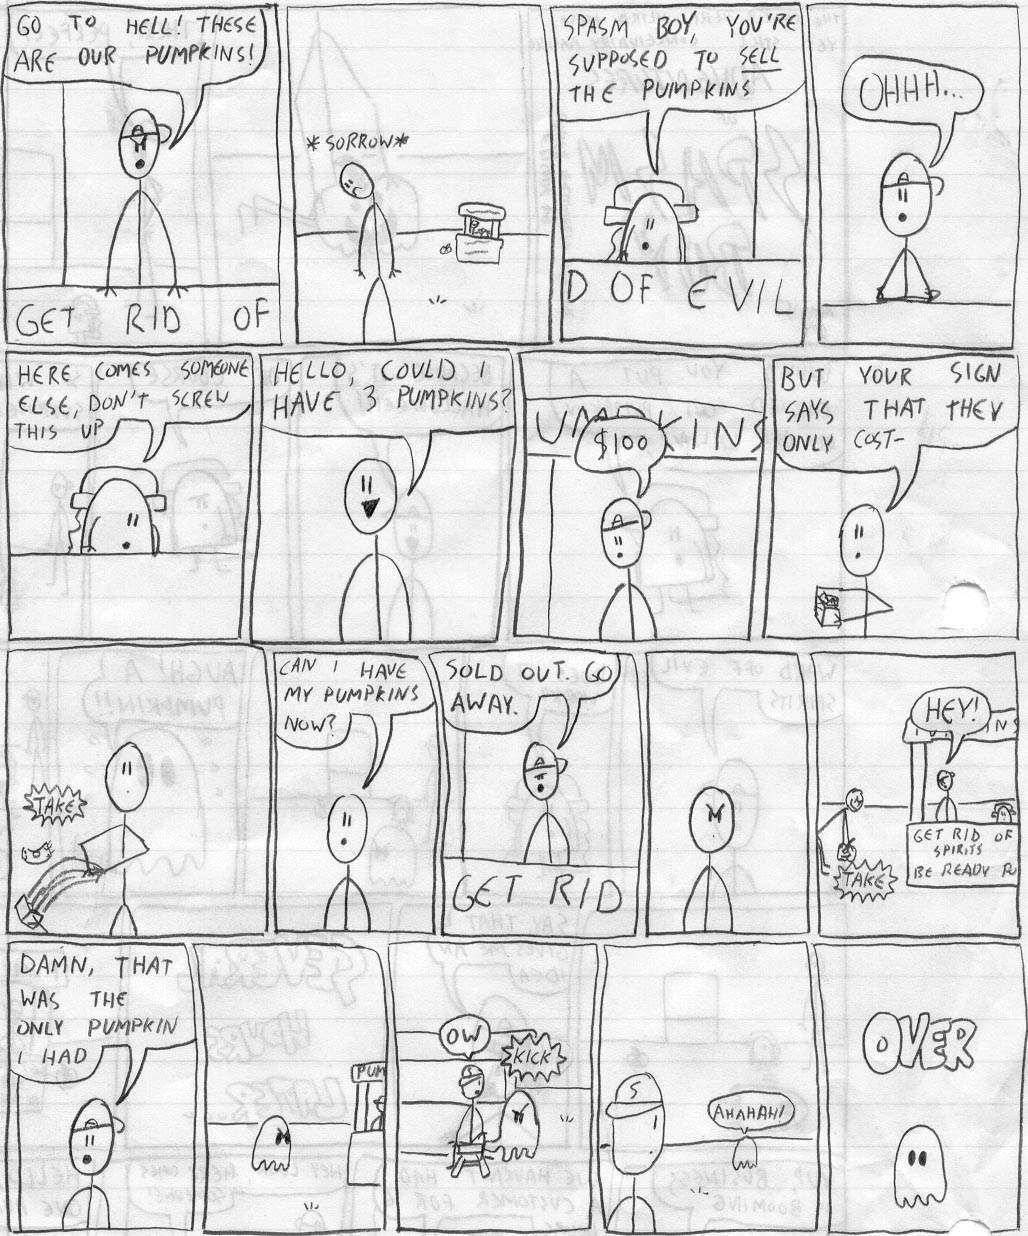 GO TO HELL! THESE
ARE OUR PUMPKINS!
GET RID OF
*SORROW*
SPASM BOY, YOU'RE
SUPPOSED TO SELL
THE PUMPKINS
D OF EVIL
OHHH...
HERE COMES SOMEONE
ELSE, DON'T SCREW
THIS UP
HELLO, COULD I
HAVE 3 PUMPKINS?
UMPKINS
$100
BUT YOUR SIGN
SAYS THAT THEY
ONLY COST-
TAKE
CAN I HAVE
MY PUMPKINS
NOW?
SOLD OUT. GO
AWAY.
GET RID
HEY!
GET RID OF
SPIRITS
BE READY FO
TAKE
DAMN, THAT
WAS THE
ONLY PUMPKIN
I HAD
PUM
OW
KICK
S
AHAHAH!
OVER